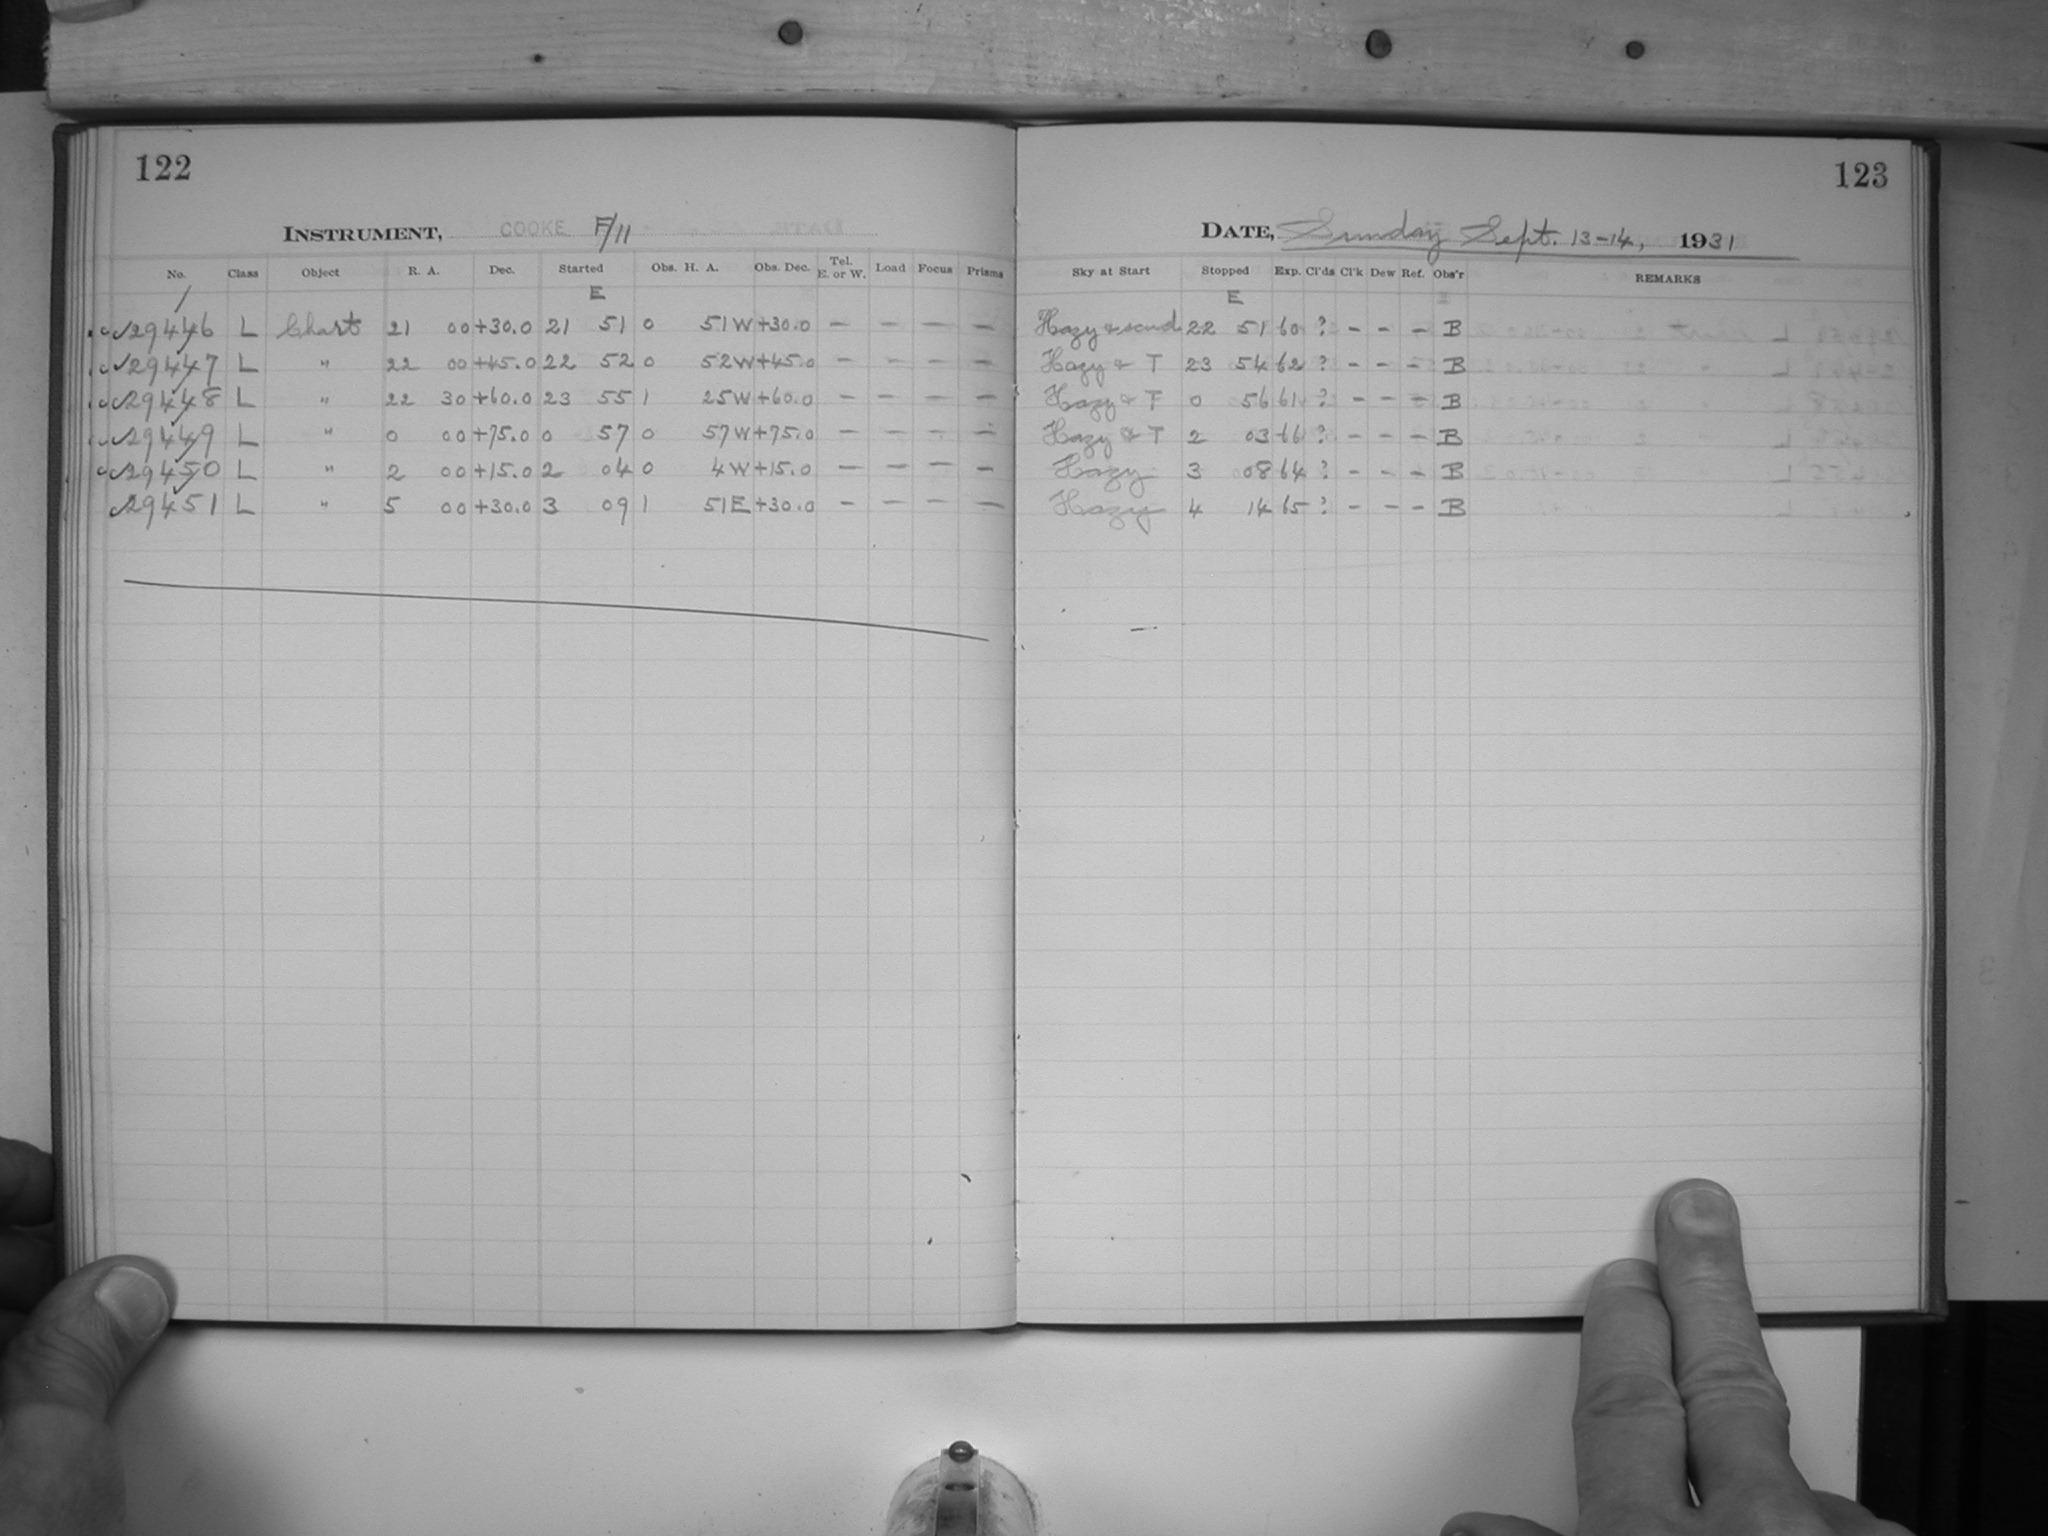 122
INSTRUMENT, COOKE F/11
No. Class Object R. A. Dec. Started Obs. H. A. Obs. Dec. Tel. E. or W. Load Focus Prisms
E
29446 L Chart 21 00 +30.0 21 51 0 51 W +30.0 — — — —
29447 L " 22 00 +45.0 22 52 0 52 W +45.0 — — — —
29448 L " 22 30 +60.0 23 55 1 25 W +60.0 — — — —
29449 L " 0 00 +75.0 0 57 0 57 W +75.0 — — — —
29450 L " 2 00 +15.0 2 04 0 4 W +15.0 — — — —
29451 L " 5 00 +30.0 3 09 1 51 E +30.0 — — — —
123
DATE, Sunday Sept. 13-14, 1931
Sky at Start Stopped Exp. Cl'ds Cl'k Dew Ref. Obs'r REMARKS
E
Hazy & scud 22 51 60 ? - - - B
Hazy & T 23 54 62 ? - - - B
Hazy & T 0 56 61 ? - - - B
Hazy & T 2 03 66 ? - - - B
Hazy 3 08 64 ? - - - B
Hazy 4 14 65 ? - - - B